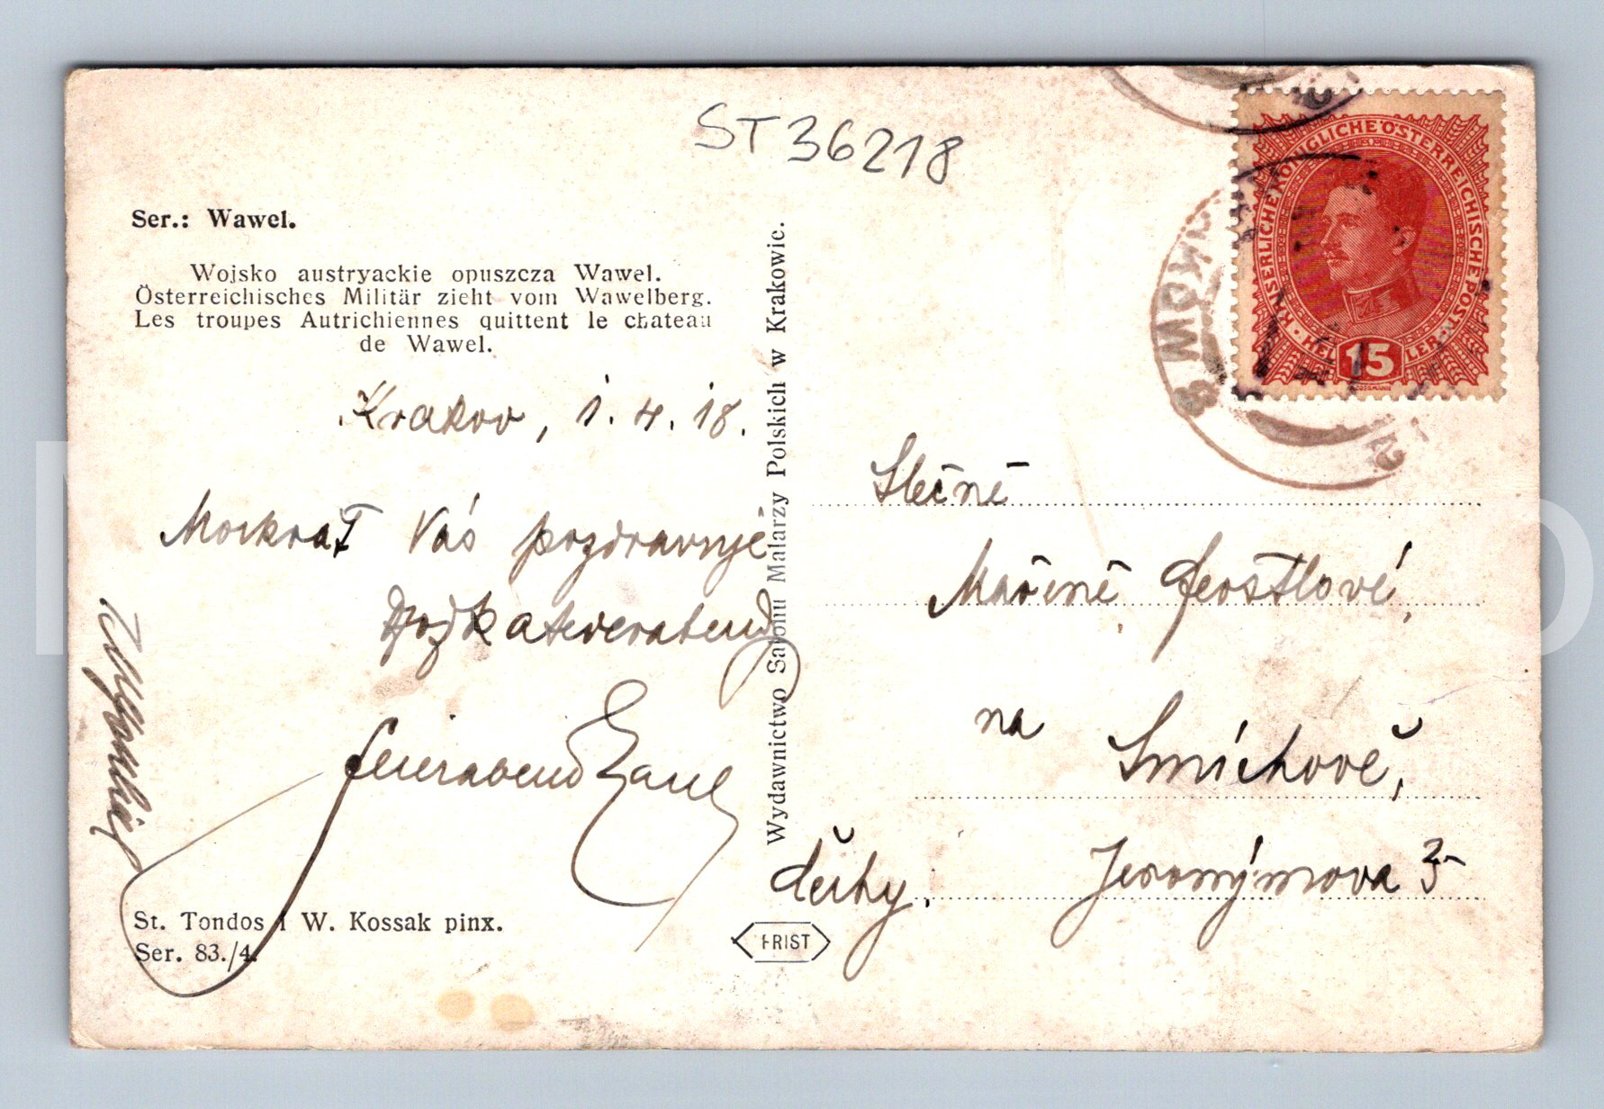 ST 36218
Ser.: Wawel.
Wojsko austryackie opuszcza Wawel.
Österreichisches Militär zieht vom Wawelberg.
Les troupes Autrichiennes quittent le chateau
de Wawel.
Krakov, 1. 4. 18.
Vás pozdravuje
Feierabend
Slečně
Mařeně Gerstlové,
na
Smíchově,
Čechy.
Jeronýmova
Wydawnictwo Salonu Malarzy Polskich w Krakowie.
St. Tondos i W. Kossak pinx.
Ser. 83./4.
FRIST
KAISERLICHE KÖNIGLICHE ÖSTERREICHISCHE POST
HELLER
15